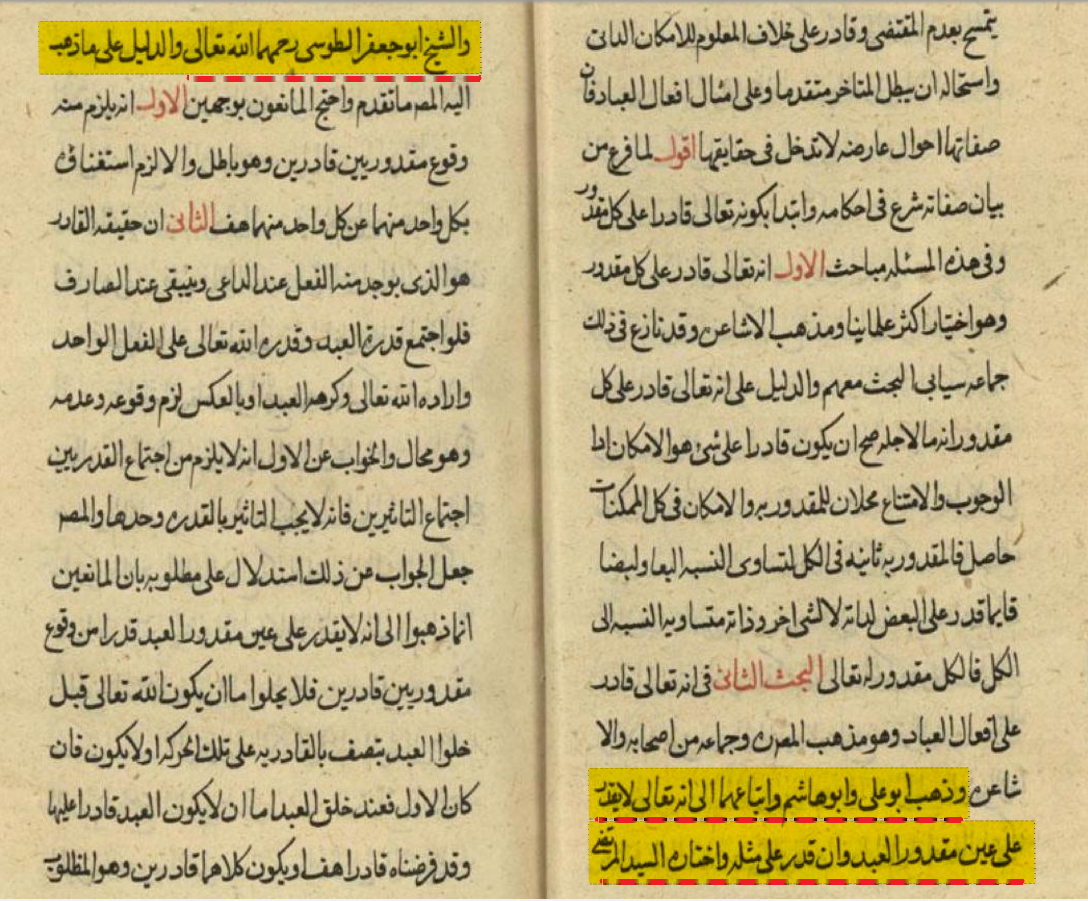 يتمسح بعدم المقتضى وقادر على خلاف المعلوم للامكان الذاتى
واستحالة ان يبطل المتاخر متقدما وعلى امثال افعال العباد فان
صفاتها احوال عارضه لا تدخل فى حقايقها اقول لما فرغ من
بيان صفاته شرع فى احكامه وابتدا بكونه تعالى قادرا على كل مقدور
وفى هذه المسئله مباحث الاول انه تعالى قادر على كل مقدور
وهو اختيار اكثر علماينا ومذهب الاشاعره وقد نازع فى ذلك
جماعه سياتى البحث معهم والدليل على انه تعالى قادر على كل
مقدور انه ما لاجله صح ان يكون قادرا على شئ هو الامكان اذا
الوجوب والامتناع محلان للمقدوريه والامكان فى كل الممكنات
حاصل فالمقدوريه ثابته فى الكل لتساوى النسبه اليها وايضا
فانما قدر على البعض لذاته لا لشى اخر وذاته متساويه النسبه الى
الكل فالكل مقدور له تعالى البحث الثانى فى انه تعالى قادر
على افعال العباد وهو مذهب المصره وجماعه من اصحابه والا
شاعره وذهب ابو على وابو هاشم واتباعهما الى انه تعالى لا يقدر
على عين مقدور العبد وان قدر على مثله واختاره السيد المرتضى
والشيخ ابو جعفر الطوسى رحمهما الله تعالى والدليل على ما ذهب
اليه المصر ما تقدم واحتج المانعون بوجهين الاول انه يلزم منه
وقوع مقدور بين قادرين وهو باطل والا لزم استغناؤه
بكل واحد منهما عن كل واحد منهما هف الثانى ان حقيقه القادر
هو الذى يوجد منه الفعل عند الداعى وينتفى عند الصارف
فلو اجتمع قدرة العبد وقدره الله تعالى على الفعل الواحد
واراده الله تعالى وكرهه العبد او بالعكس لزم وقوعه وعدمه
وهو محال والجواب عن الاول انه لا يلزم من اجتماع القدرتين
اجتماع التاثيرين فانه لا يجب التاثير بالقدره وحدها والمصر
جعل الجواب عن ذلك استدلال على مطلوبه بان المانعين
انما ذهبوا الى انه لا يقدر على عين مقدور العبد قدرا من وقوع
مقدور بين قادرين فلا يخلوا ما ان يكون الله تعالى قبل
خلوا العبد يتصف بالقادريه على تلك الحركه او لا يكون فان
كان الاول فعند خلق العبد اما ان لا يكون العبد قادرا عليها
وقد فرضناه قادرا هف او يكون كلاهما قادرين وهو المطلوب